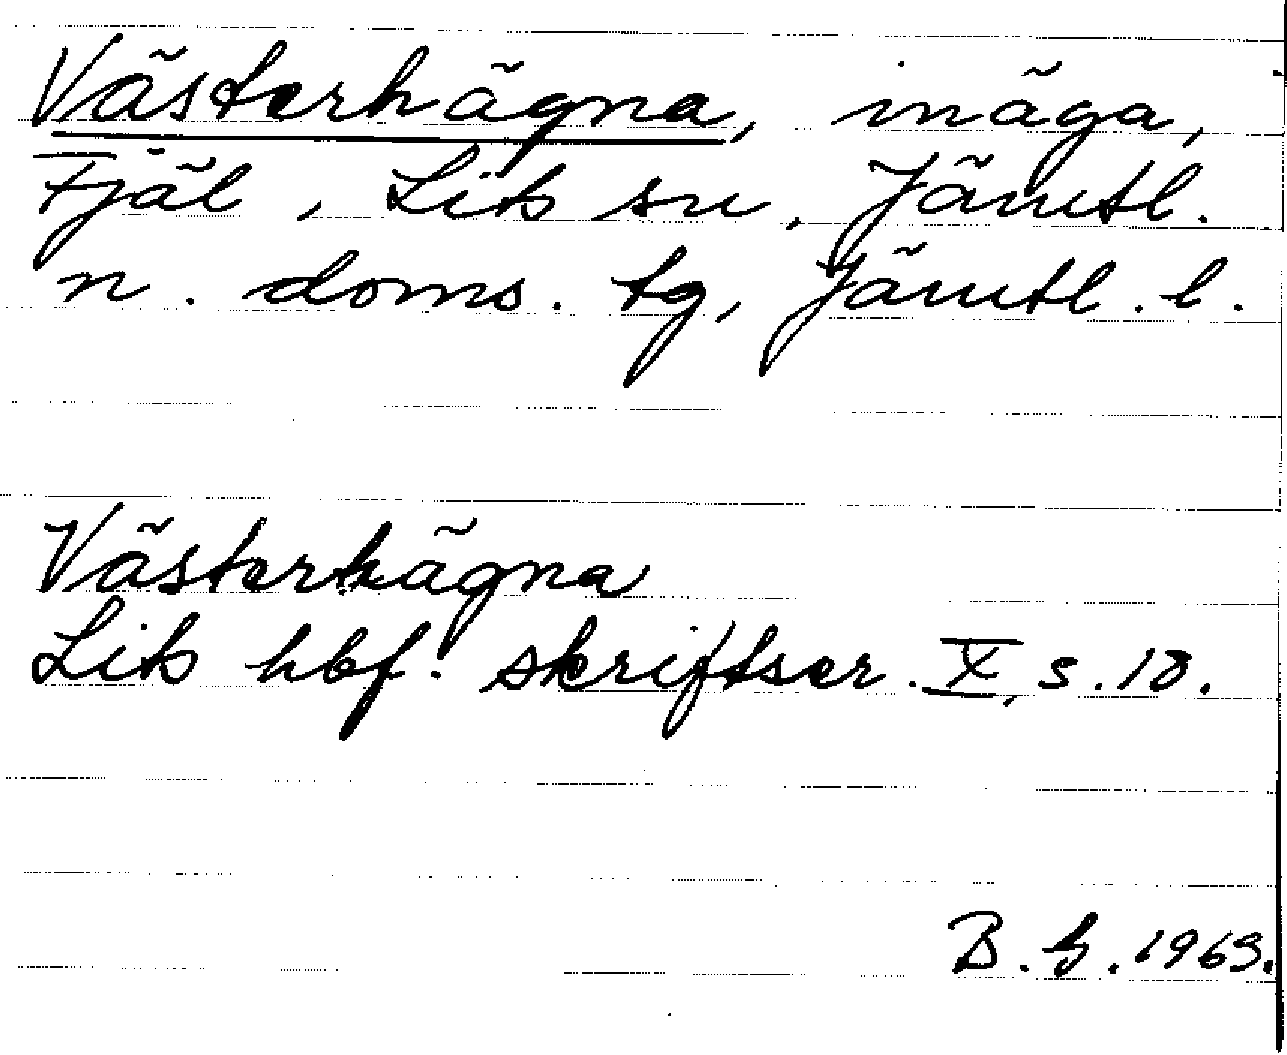 Västerhägna, inäga,
Fjäl, Lits sn, Jämtl.
n. doms. tg, Jämtl. l.
Västerhägna
Lits hbf. skriftser. X, s. 18.
B. G. 1963.